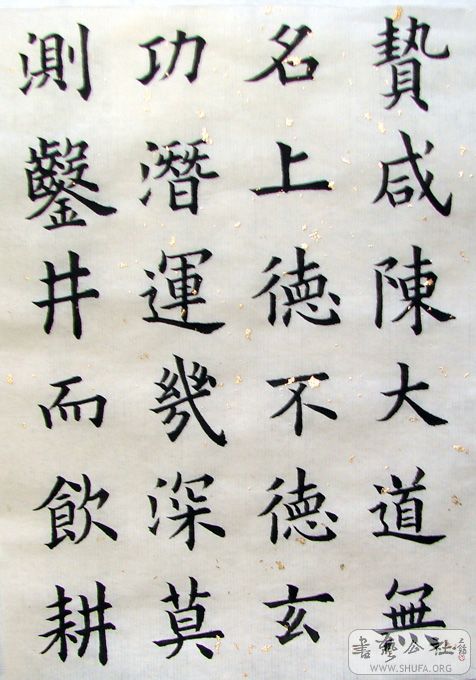 贄咸陳大道無
名上德不德玄
功潛運幾深莫
測鑿井而飲耕
書藝公社
WWW.SHUFA.ORG